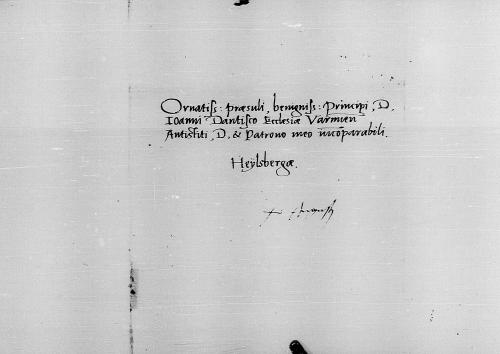 Ornatiss: præsuli, benigniss: Principi, D.
Ioanni Dantisco Ecclesiæ Varmien
Antistiti, D. & Patrono meo incõparabili.
Heylsbergæ.